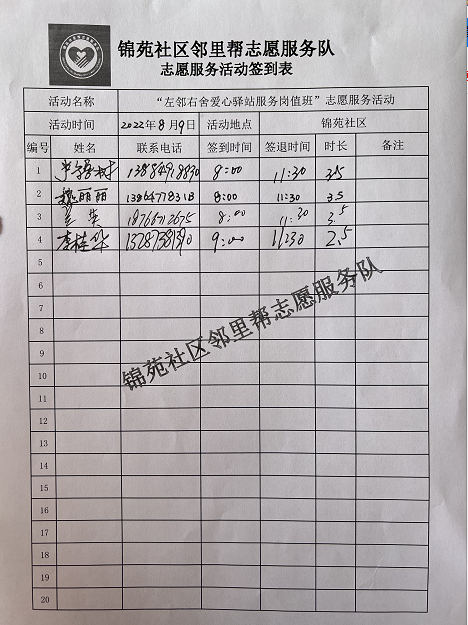 锦苑社区邻里帮志愿服务队
志愿服务活动签到表
活动名称 “左邻右舍爱心驿站服务岗值班”志愿服务活动
活动时间 2022年8月9日 活动地点 锦苑社区
编号 姓名 联系电话 签到时间 签退时间 时长 备注
1 8:00 11:30 3.5
2 丽丽 13864778318 8:00 11:30 3.5
3 8:00 11:30 3.5
4 李桂华 9:00 11:30 2.5
5
6
7
锦苑社区邻里帮志愿服务队
8
9
10
11
12
13
14
15
16
17
18
19
20